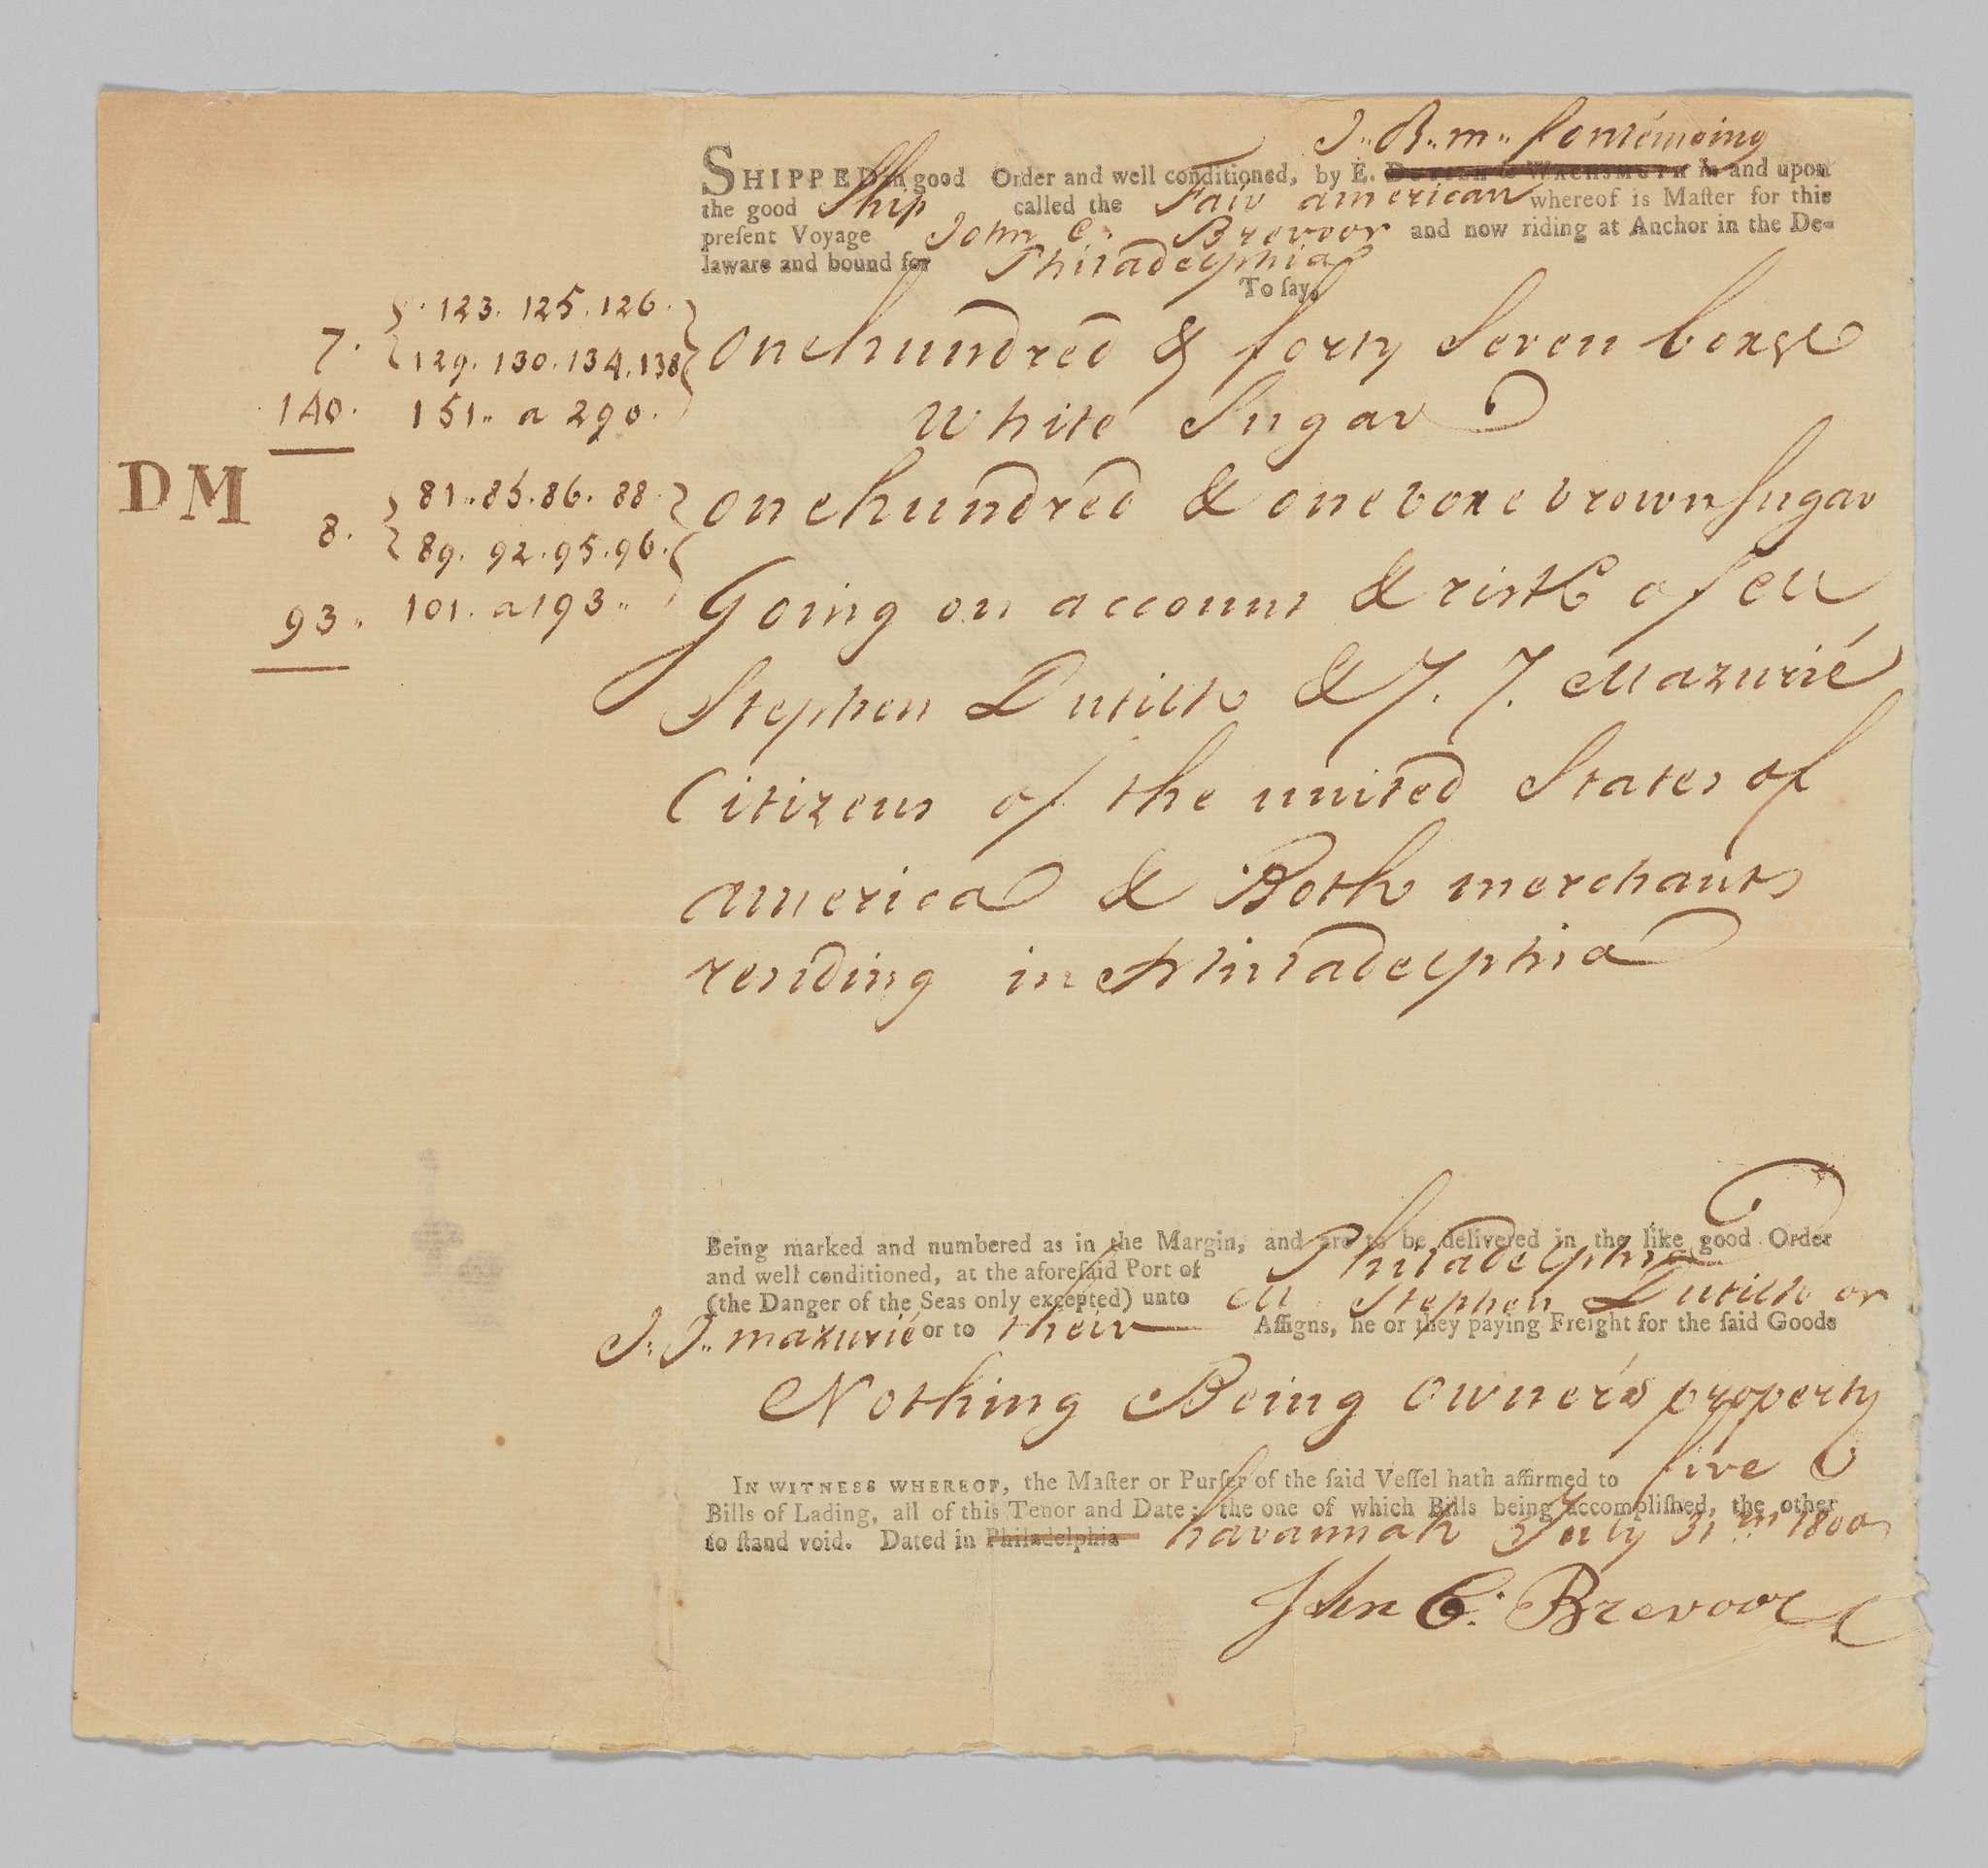 J.. B.. m.. fontémoing
SHIPPED in good Order and well conditioned, by E. DUTILH & WACHSMUTH in and upon
the good Ship called the Fair american whereof is Maſter for this
preſent Voyage John C. Brevoor and now riding at Anchor in the De-
laware and bound for Philadelphia
To ſay,
7. 123. 125. 126. 129. 130. 134. 138 onehundred & forty Seven boxes
140. 151.. a 290. White Sugar
DM
8. 81..85.86. 88. 89. 92.95.96. onehundred & one boxe brown Sugar
93.. 101. a 193.. Going on account & risk of M
Stephen Dutilh & J. J. Mazurié
Citizens of the united States of
america & Both merchants
residing in Philadelphia
Being marked and numbered as in the Margin, and are to be delivered in the like good Order
and well conditioned, at the aforeſaid Port of Philadelphia
(the Danger of the Seas only excepted) unto M Stephen Dutilh or
J.. J.. mazurié or to their Aſſigns, he or they paying Freight for the ſaid Goods
Nothing Being owner's property
IN WITNESS WHEREOF, the Maſter or Purſer of the ſaid Veſſel hath affirmed to five
Bills of Lading, all of this Tenor and Date; the one of which Bills being accompliſhed, the other
to ſtand void. Dated in Philadelphia havannah July 31th 1800
John C. Brevoor